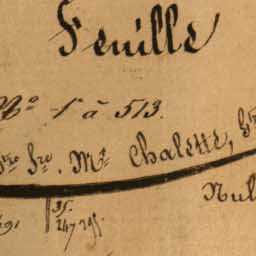 Feuille
No 1 à 513.
Mr Chalette,
Nul
35.
247 295.